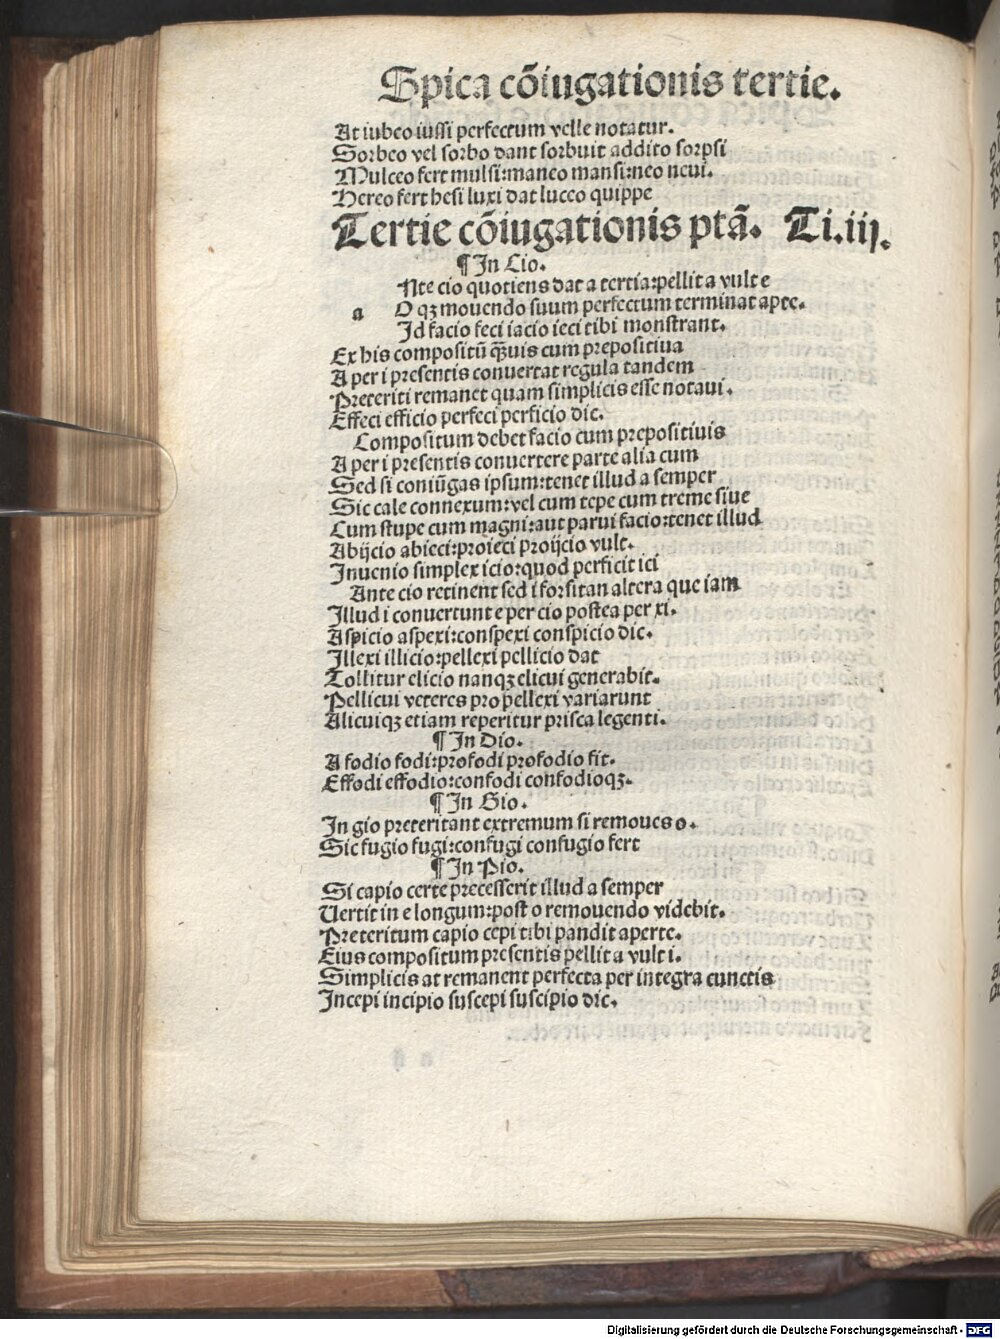 Spica cõiugationis tertie.
At iubeo iussi perfectum velle notatur.
Sorbeo vel sorbo dant sorbuit addito sorpsi
Mulceo fert mulsi:maneo mansi:neo neui.
Hereo fert hesi luxi dat luceo quippe
Tertie cõiugationis ptã. Ti.iij.
¶ In Cio.
Nte cio quotiens dat a tertia:pellit a vult e
a O qꝫ mouendo suum perfectum terminat apte.
Id facio feci iacio ieci tibi monstrant.
Ex his compositũ qͣ̃uis cum prepositiua
A per i presentis conuertat regula tandem
Preteriti remanet quam simplicis esse notaui.
Effeci efficio perfeci perficio dic.
Compositum debet facio cum prepositiuis
A per i presentis conuertere parte alia cum
Sed si coniũgas ipsum:tenet illud a semper
Sic cale connexum:vel cum tepe cum treme siue
Cum stupe cum magni:aut parui facio:tenet illud
Abijcio abieci:proieci proijcio vult.
Inuenio simplex icio:quod perficit ici
Ante cio retinent sed i forsitan altera que iam
Illud i conuertunt e per cio postea per xi.
Aspicio aspexi:conspexi conspicio dic.
Illexi illicio:pellexi pellicio dat
Tollitur elicio nanqꝫ elicui generabit.
Pellicui veteres pro pellexi variarunt
Alicuiqꝫ etiam reperitur prisca legenti.
¶ In Dio.
A fodio fodi:profodi profodio fit.
Effodi effodio:confodi confodioqꝫ.
¶ In Gio.
In gio preteritant extremum si remoues o.
Sic fugio fugi:confugi confugio fert
¶ In Pio.
Si capio certe precesserit illud a semper
Uertit in e longum:post o remouendo videbit.
Preteritum capio cepi tibi pandit aperte.
Eius compositum presentis pellit a vult i.
Simplicis at remanent perfecta per integra cunctis
Incepi incipio suscepi suscipio dic.
Digitalisierung gefördert durch die Deutsche Forschungsgemeinschaft - DFG